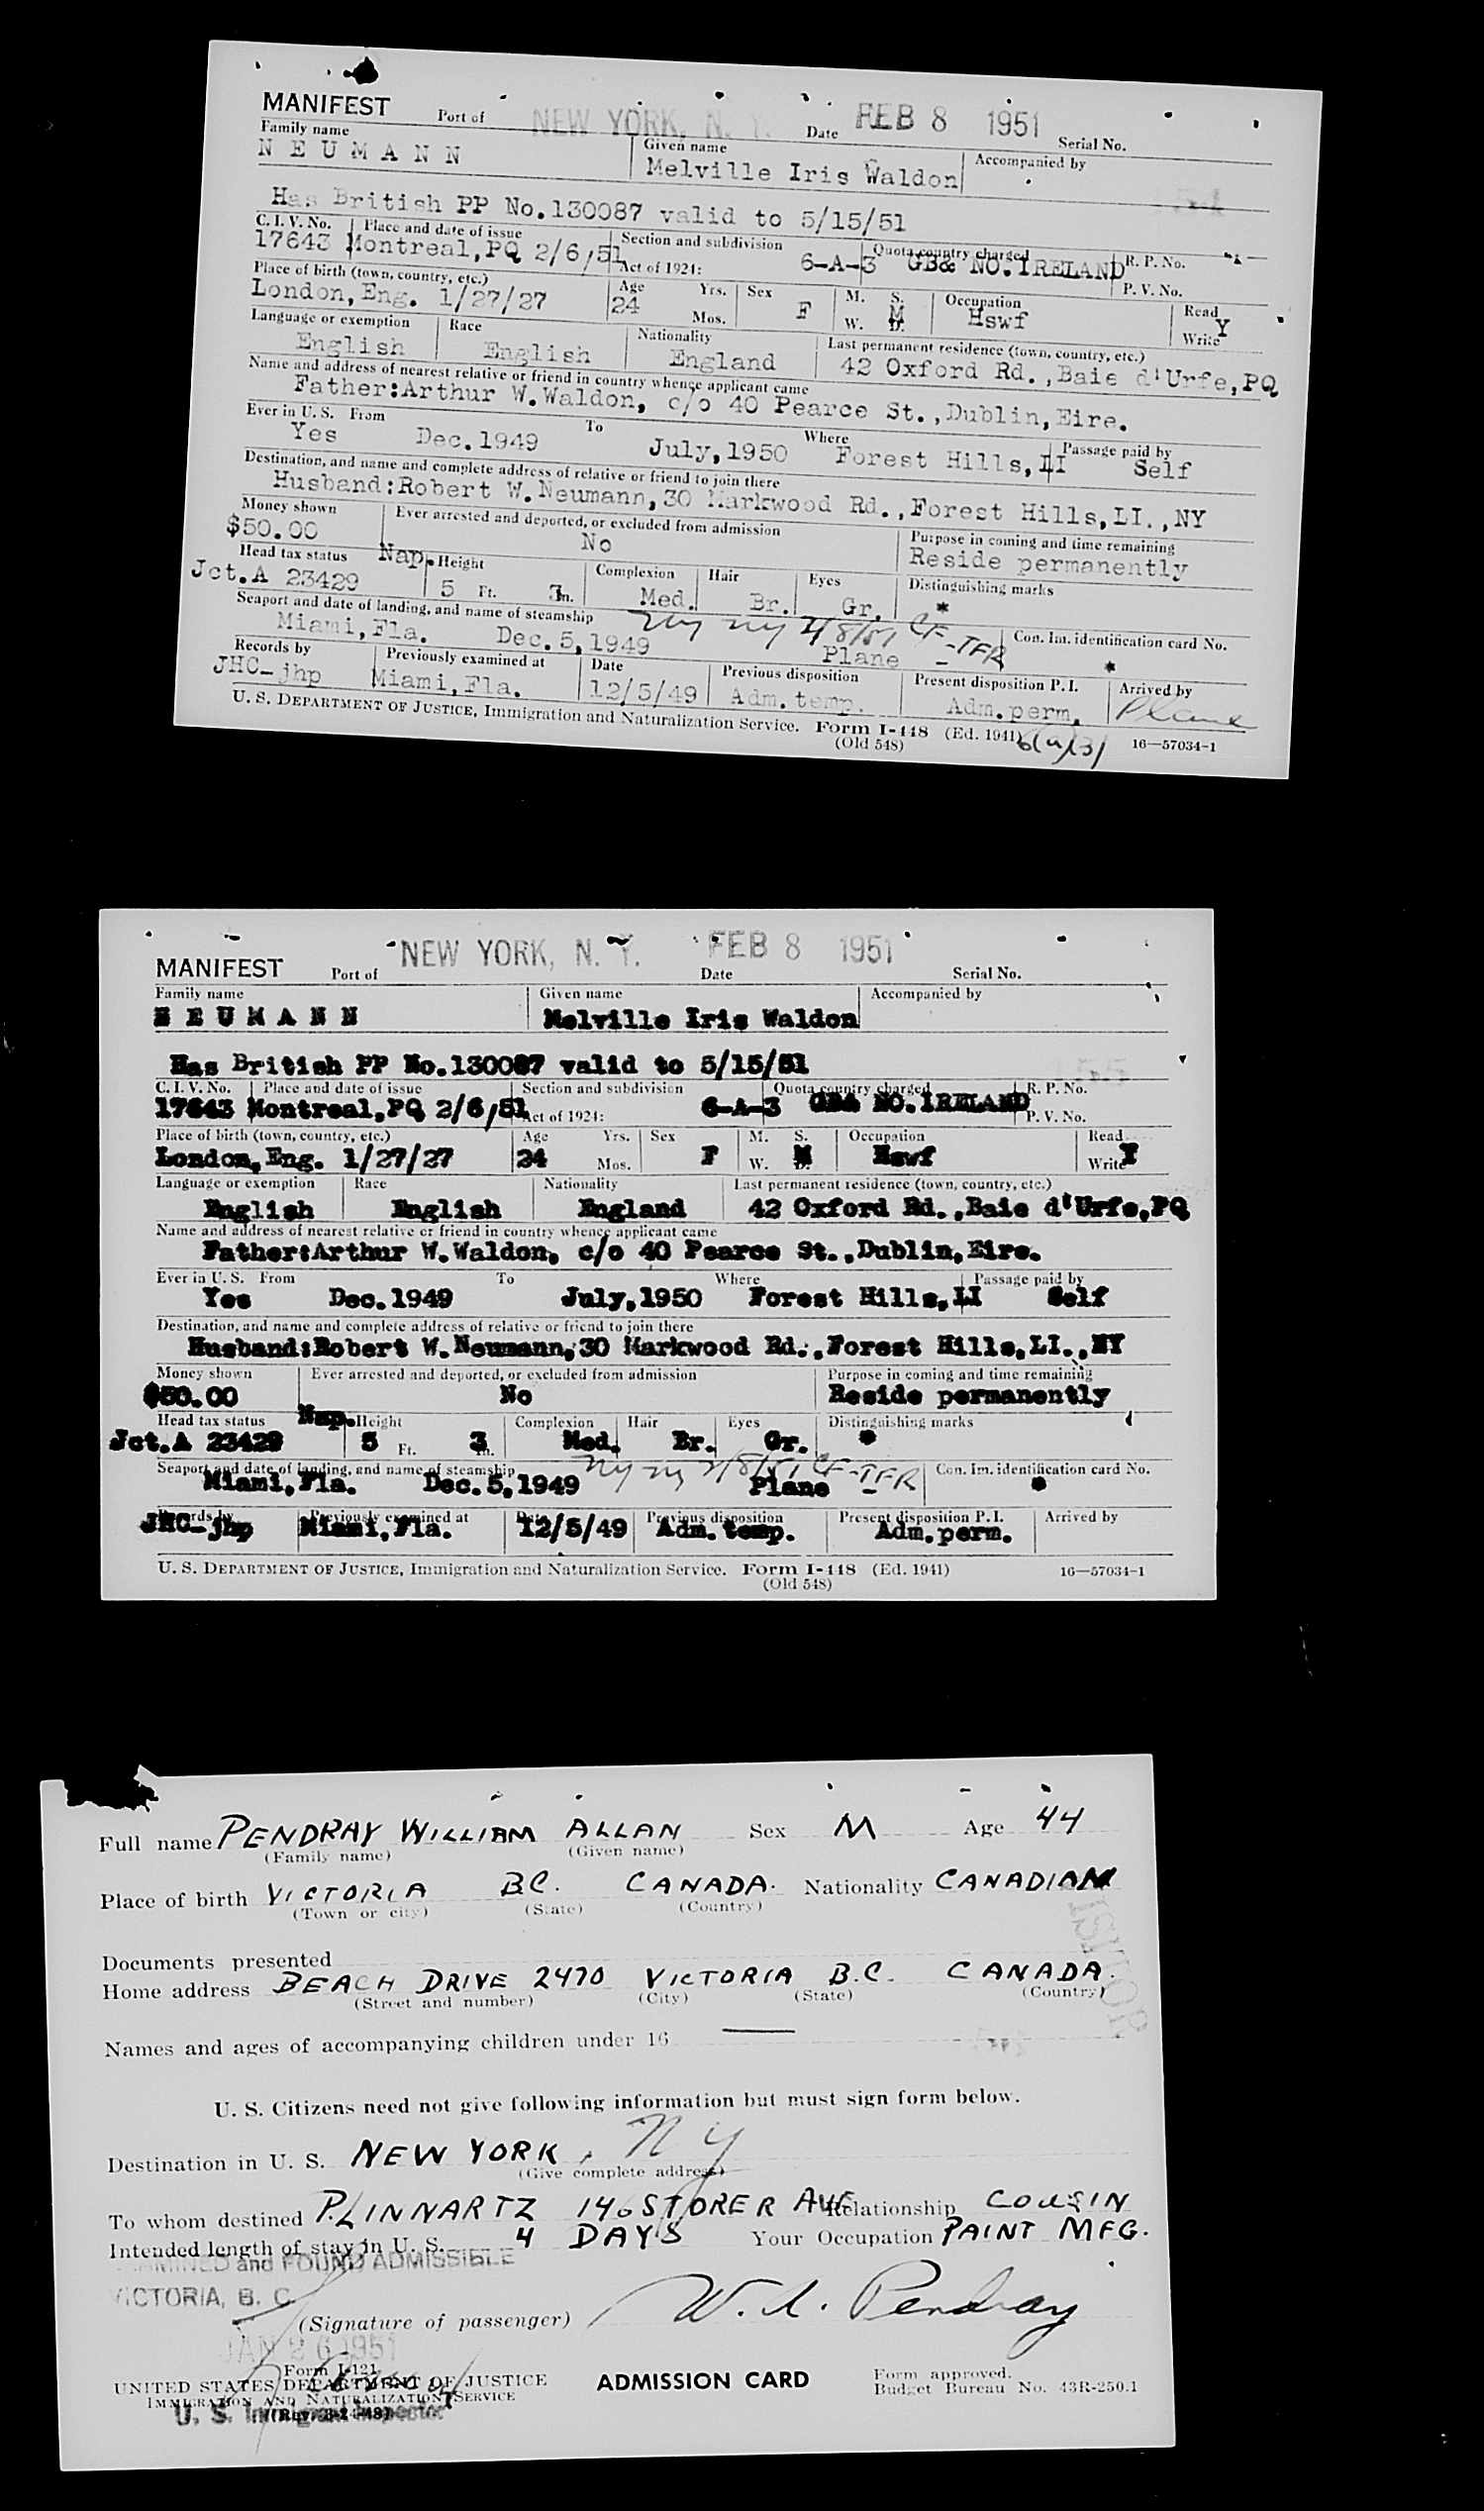 MANIFEST Port of NEW YORK, N. Y. Date FEB 8 1951 Serial No.
Family name Given name Accompanied by
N E U M A N N Melville Iris Waldon
Has British PP No.130087 valid to 5/15/51
C. I. V. No. Place and date of issue Section and subdivision Quota country charged R. P. No.
17643 Montreal,PQ 2/6/51 Act of 1924: 6-A-3 GB& NO.IRELAND P. V. No.
Place of birth (town, country, etc.) Age Yrs. Sex M. S. Occupation Read
London,Eng. 1/27/27 24 Mos. F W. M D. Hswf Write Y
Language or exemption Race Nationality Last permanent residence (town, country, etc.)
English English England 42 Oxford Rd.,Baie d'Urfe,PQ
Name and address of nearest relative or friend in country whence applicant came
Father:Arthur W.Waldon, c/o 40 Pearce St.,Dublin,Eire.
Ever in U. S. From To Where Passage paid by
Yes Dec.1949 July,1950 Forest Hills,LI Self
Destination, and name and complete address of relative or friend to join there
Husband:Robert W.Neumann,30 Markwood Rd.,Forest Hills,LI.,NY
Money shown Ever arrested and deported, or excluded from admission Purpose in coming and time remaining
$50.00 No Reside permanently
Head tax status Nap. Height Complexion Hair Eyes Distinguishing marks
Jct.A 23429 5 Ft. 3 In. Med. Br. Gr. *
Seaport and date of landing, and name of steamship NY NY 2/8/51 CF-TFR Con. Im. identification card No.
Miami,Fla. Dec.5,1949 Plane *
Records by Previously examined at Date Previous disposition Present disposition P. I. Arrived by
JHC-jhp Miami,Fla. 12/5/49 Adm.temp. Adm.perm. Plane
U. S. DEPARTMENT OF JUSTICE, Immigration and Naturalization Service. Form I-448 (Ed. 1941) 6(a)(3) 16—57034-1
(Old 548)
NEW YORK, N. Y. FEB 8 1951
MANIFEST Port of Date Serial No.
Family name Given name Accompanied by
N E U M A N N Melville Iris Waldon
Has British PP No.130087 valid to 5/15/51
155
C. I. V. No. Place and date of issue Section and subdivision Quota country charged R. P. No.
17643 Montreal,PQ 2/6/51 Act of 1924: 6-A-3 GB& NO.IRELAND P. V. No.
Place of birth (town, country, etc.) Age Yrs. Sex M. S. Occupation Read
London,Eng. 1/27/27 24 Mos. F W. M D. Hswf Write Y
Language or exemption Race Nationality Last permanent residence (town, country, etc.)
English English England 42 Oxford Rd.,Baie d'Urfe,PQ
Name and address of nearest relative or friend in country whence applicant came
Father:Arthur W.Waldon, c/o 40 Pearce St.,Dublin,Eire.
Ever in U. S. From To Where Passage paid by
Yes Dec.1949 July,1950 Forest Hills,LI Self
Destination, and name and complete address of relative or friend to join there
Husband:Robert W.Neumann,30 Markwood Rd.,Forest Hills,LI.,NY
Money shown Ever arrested and deported, or excluded from admission Purpose in coming and time remaining
$50.00 No Reside permanently
Head tax status Nap. Height Complexion Hair Eyes Distinguishing marks
Jct.A 23429 5 Ft. 3 In. Med. Br. Gr. *
Seaport and date of landing, and name of steamship NY NY 2/8/51 CF-TFR Con. Im. identification card No.
Miami,Fla. Dec.5,1949 Plane *
Records by Previously examined at Date Previous disposition Present disposition P. I. Arrived by
JHC-jhp Miami,Fla. 12/5/49 Adm.temp. Adm.perm.
U. S. DEPARTMENT OF JUSTICE, Immigration and Naturalization Service. Form I-448 (Ed. 1941) 16—57034-1
(Old 548)
Full name PENDRAY WILLIAM ALLAN Sex M Age 44
(Family name) (Given name)
Place of birth VICTORIA BC. CANADA. Nationality CANADIAN
(Town or city) (State) (Country)
Documents presented
Home address BEACH DRIVE 2470 VICTORIA B.C. CANADA.
(Street and number) (City) (State) (Country)
Names and ages of accompanying children under 16 —
U. S. Citizens need not give following information but must sign form below.
Destination in U. S. NEW YORK, NY
(Give complete address)
To whom destined P. LINNARTZ 146 STORER AVE Relationship COUSIN
Intended length of stay in U. S. 4 DAYS Your Occupation PAINT MFG.
and FOUND ADMISSIBLE
VICTORIA, B. C.
(Signature of passenger) W. A. Pendray
JAN 26 1951
Form I-121
UNITED STATES DEPARTMENT OF JUSTICE ADMISSION CARD Form approved.
IMMIGRATION AND NATURALIZATION SERVICE Budget Bureau No. 43R-250.1
U. S. Immigrant Inspector